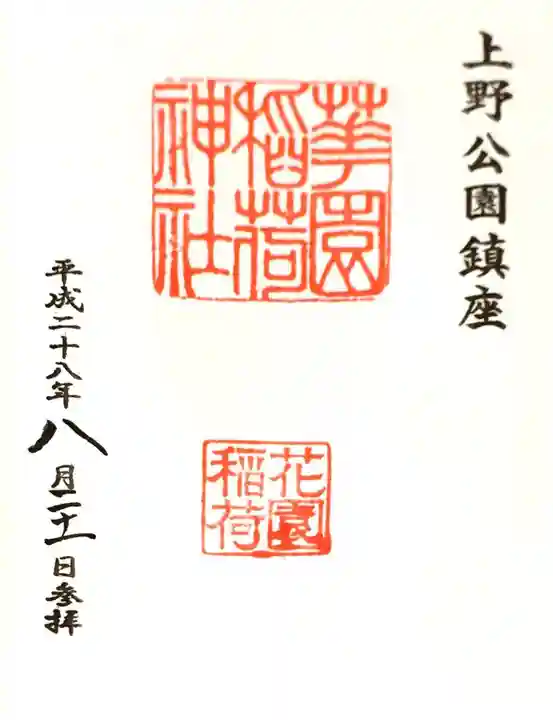 上野公園鎮座
華園
稲荷
神社
花園
稲荷
平成二十八年八月二十一日参拝